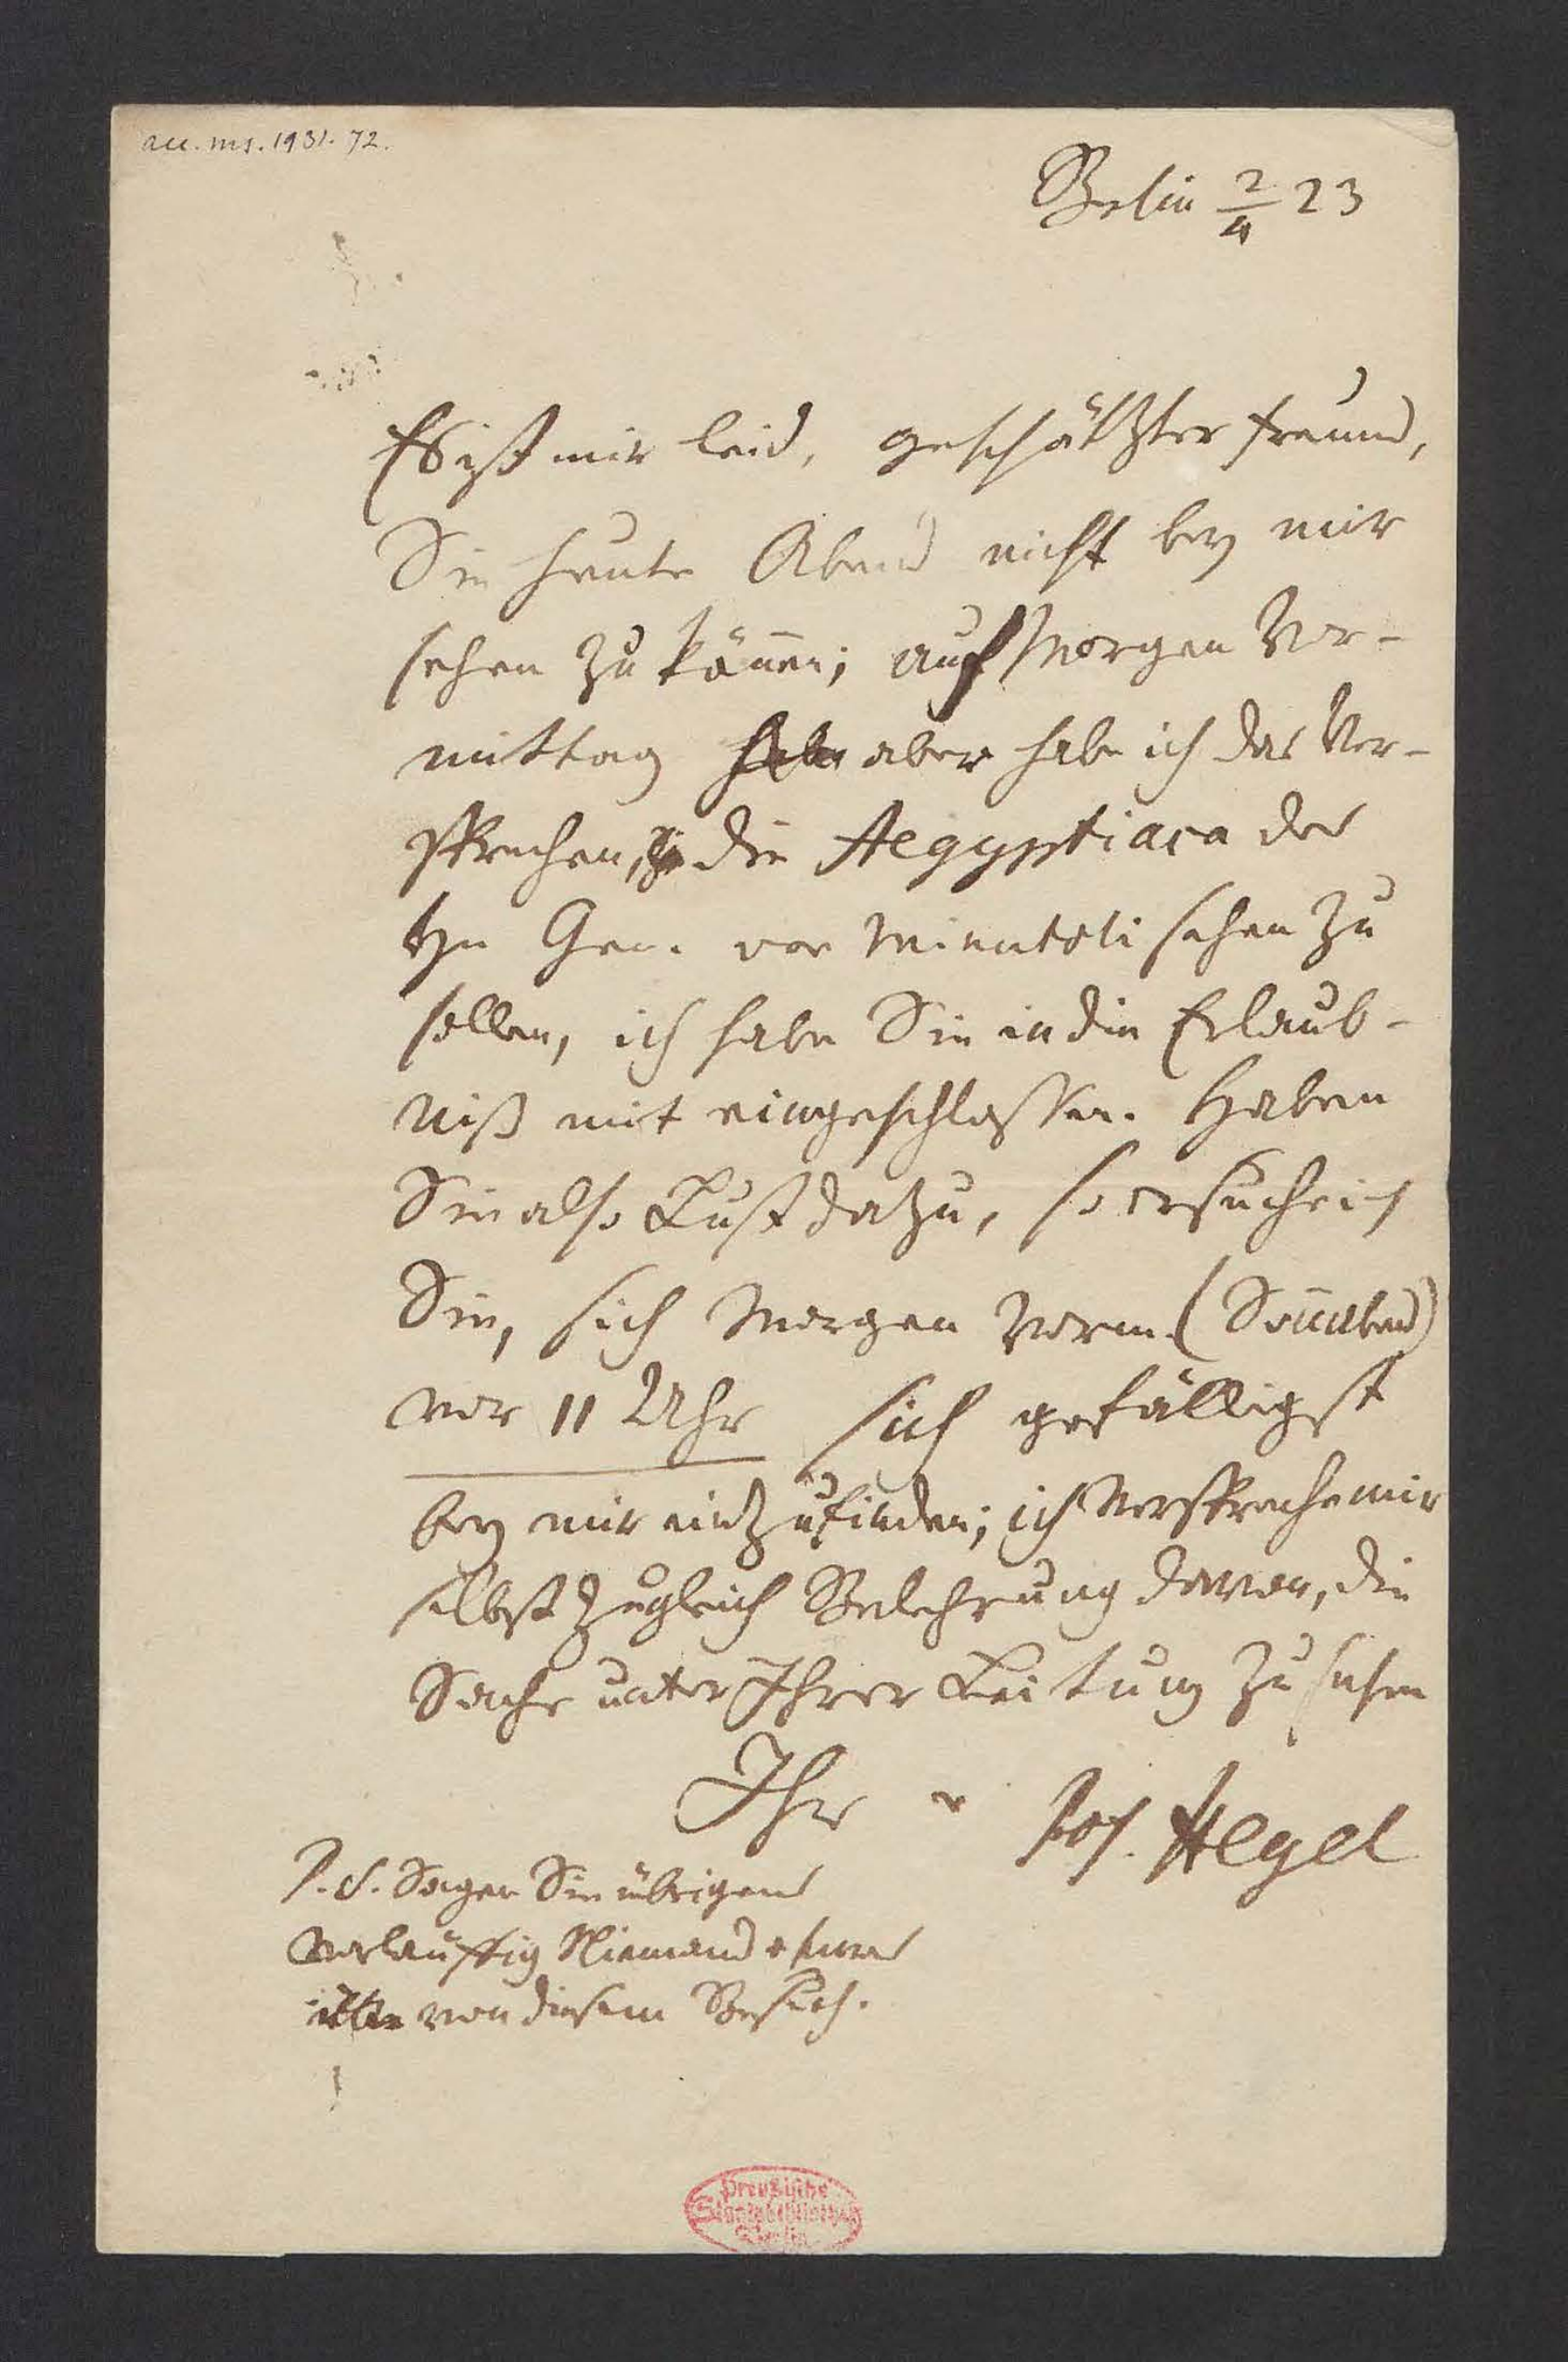 acc. ms. 1931. 72.
Berlin 2/4 23
Es ist mir leid, geschätzter Freund,
Sie heute Abend nicht bey mir
sehen zu können; auf Morgen Vor-
mittag habe aber habe ich das Ver-
sprechen, die Aegyptiaca des
Hn Gen. von Minutoli sehen zu
sollen, ich habe Sie in die Erlaub-
niß mit eingeschlossen. Haben
Sie also Lust dazu, so ersuche ich
Sie, sich Morgen Vorm. (Sonnabend)
vor 11 Uhr sich gefälligst
bey mir einzufinden; ich verspreche mir
selbst zugleich Belehrung davon, die
Sache unter Ihrer Leitung zu sehen
Ihr Prof. Hegel
P. S. Sagen Sie übrigens
vorläuffig Niemand etwas
von diesem Besuch.
Preußische
Staatsbibliothek
Berlin